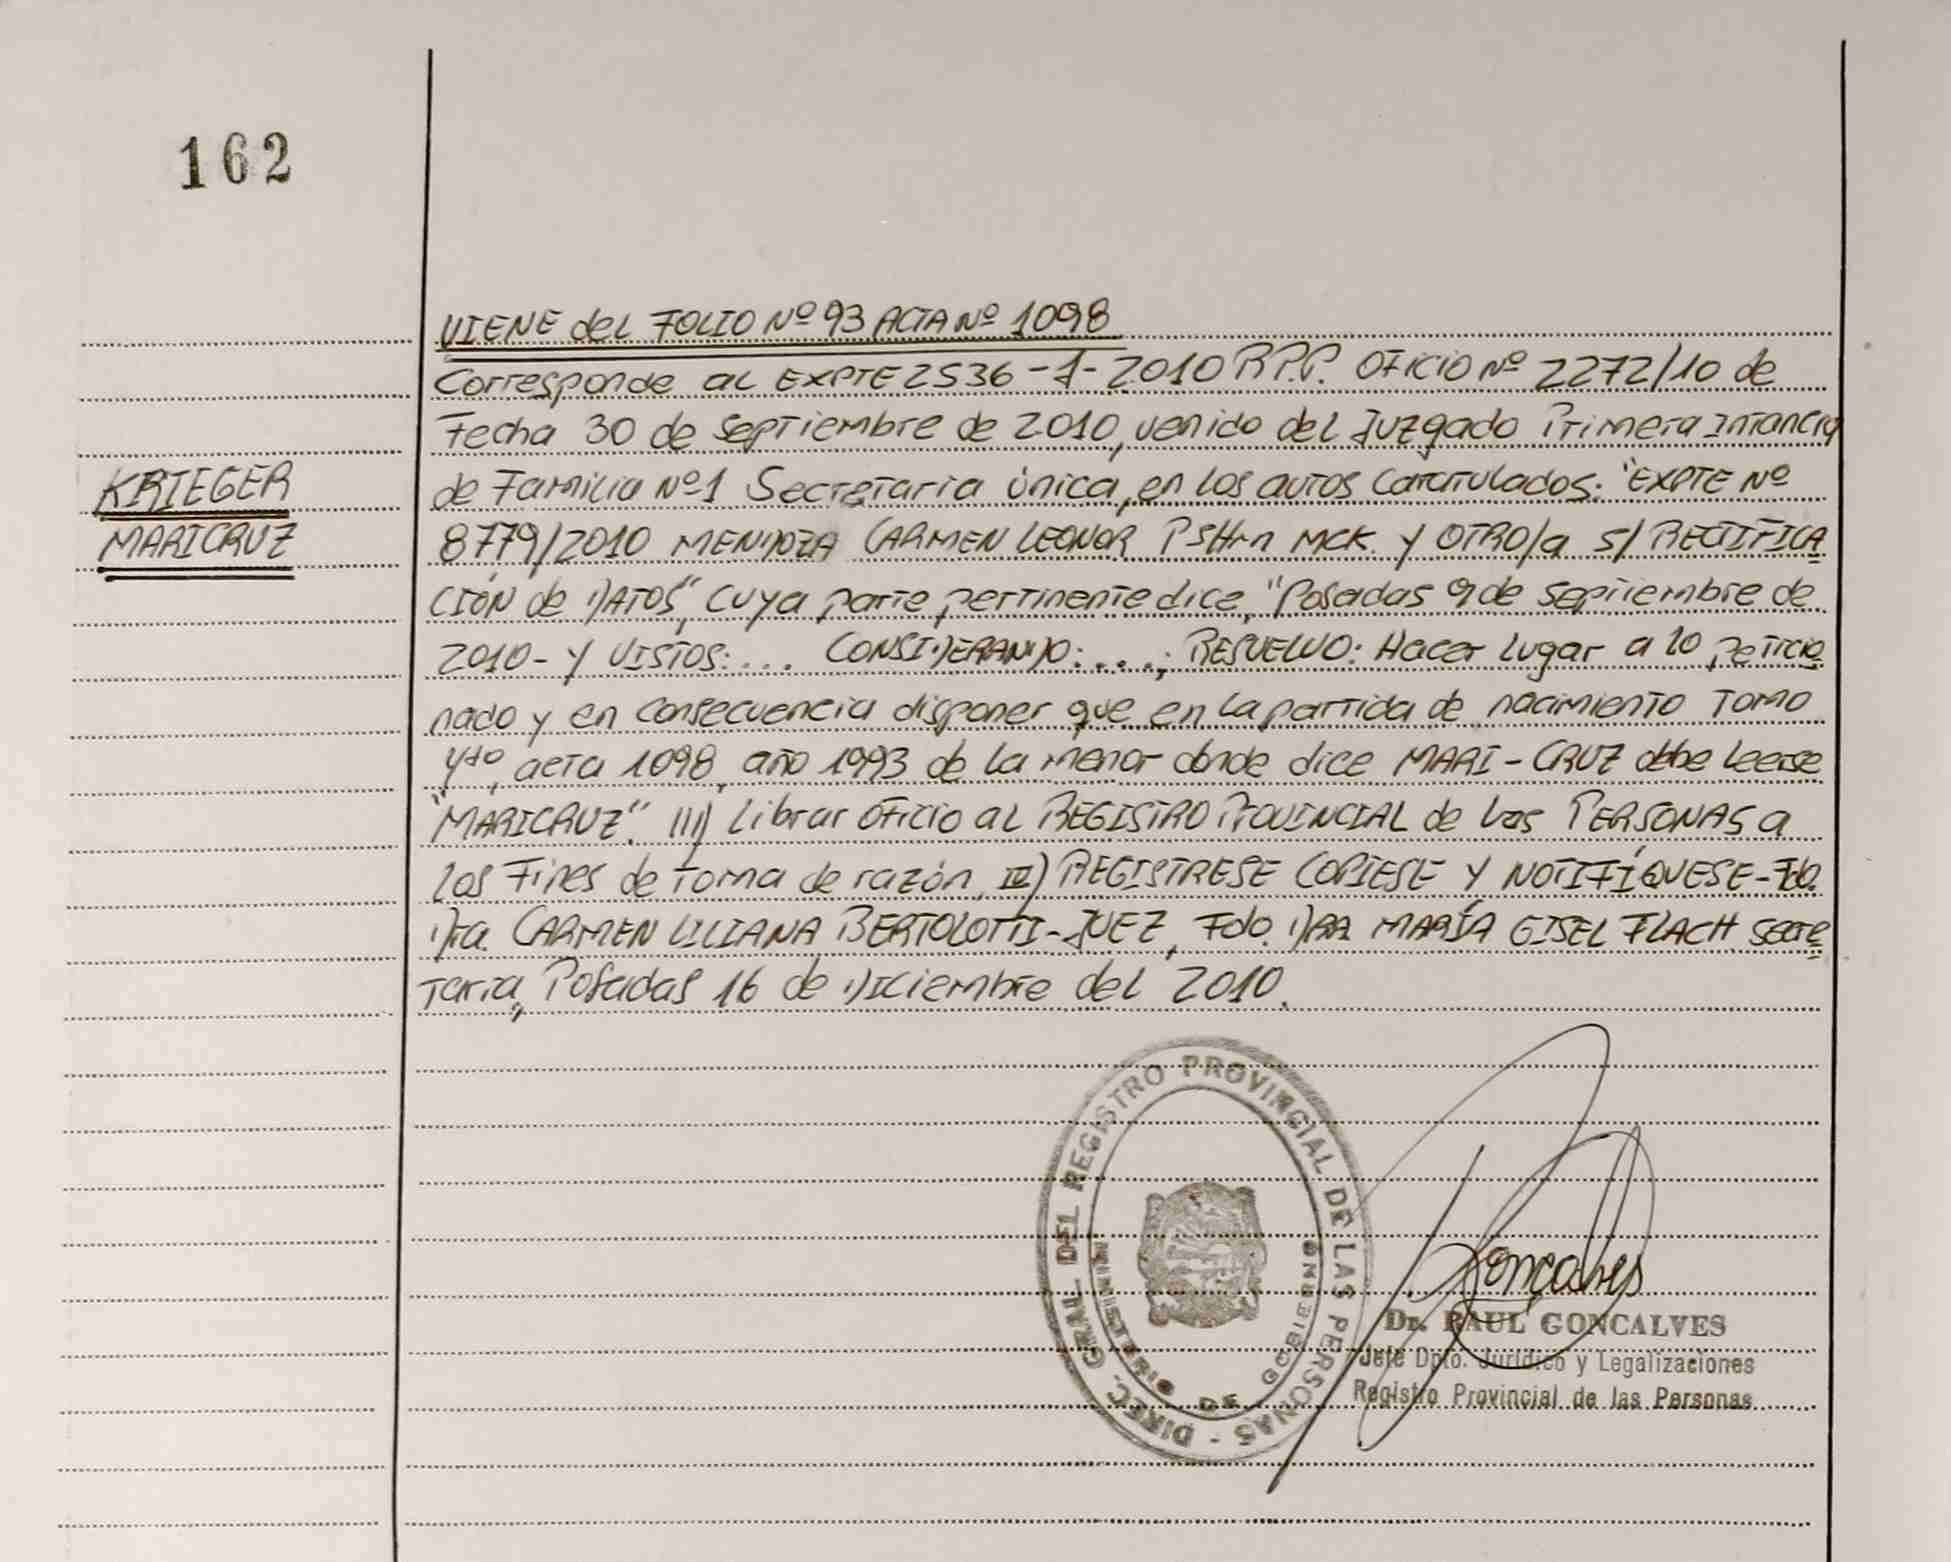 162
VIENE del FOLIO Nº 93 ACTA Nº 1098
Corresponde al EXPTE 2536-J-2010 R.P.P. OFICIO Nº 2272/10 de
Fecha 30 de septiembre de 2010, venido del Juzgado Primera Intancia
de Familia Nº1 Secretaria única, en los autos caratulados: "EXPTE Nº
KRIEGER
8779/2010 MENDOZA CARMEN LEONOR P MCK. Y OTRO/a S/ RECTIFICA
MARICRUZ
CIÓN de DATOS", cuya parte pertinente dice, "Posadas 9 de septiembre de
2010- Y VISTOS:.... CONSIDERANDO:....; RESUELVO: Hacer lugar a lo peticio
nado y en consecuencia disponer que en la partida de nacimiento Tomo
4to, acta 1098, año 1993 de la menor donde dice MARI-CRUZ debe leerse
"MARICRUZ". III) Librar oficio al REGISTRO PROVINCIAL de las PERSONAS a
los Fines de toma de razón, IV) REGISTRESE COPIESE Y NOTIFÍQUESE-Fdo.
Dra. CARMEN LILIANA BERTOLOTTI-JUEZ, Fdo. DRA MARÍA GISEL FLACH secre
taria, Posadas 16 de Diciembre del 2010.
DIREC. GRAL. DEL REGISTRO PROVINCIAL DE LAS PERSONAS -
DE
Goncalves
Dr. RAUL GONCALVES
Jefe Dpto. Jurídico y Legalizaciones
Registro Provincial de las Personas